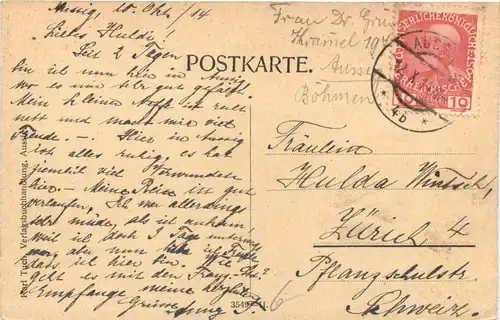 Aussig, 10. Okt./14
Liebes Huldi!
Seit 2 Tagen
bin ich nun hier in Aussig
wo es mir sehr gut gefällt.
Mein kleiner Neffe ist recht
nett und macht mir viel
Freude. –. Hier in Aussig
ist alles ruhig, es hat
ziemlich viel Verwundete
hier. – Meine Reise ist gut
verlaufen, ich war allerdings
sehr müde, als ich ankam,
weil ich doch 3 Tage unterwegs
war, aber nun bin ich Freude
dass ich hier bin. Wie
geht es mit den
Empfange meine herzlichsten
Grüsse
POSTKARTE.
Frau Dr.
Aussig
Böhmen
KAISERLICHE KÖNIGLICHE ÖSTERREICHISCHE POST
10 10
AUSSIG
* 4b *
Fräulein
Hulda
Zürich 4
Pflanzschulstr.
Schweiz.
Karl Tuch, Verlagsbuchhandlung, Aussig
6